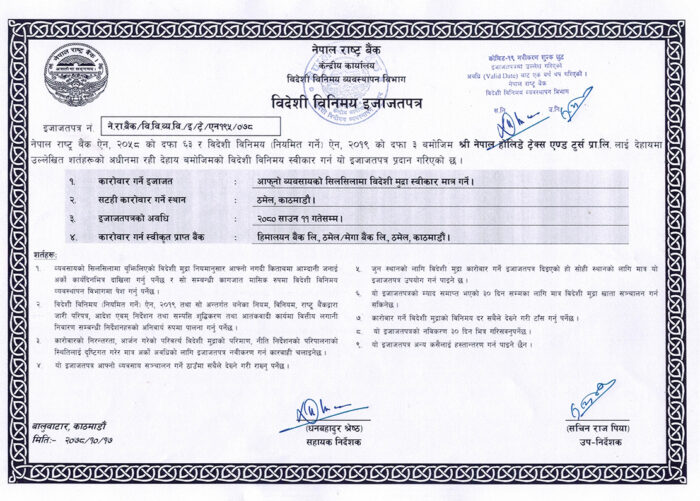 नेपाल राष्ट्र बैंक
केन्द्रीय कार्यालय
विदेशी विनिमय व्यवस्थापन विभाग
विदेशी विनिमय इजाजतपत्र
कोभिड-१९ नवीकरण शुल्क छुट
इजाजतपत्रमा उल्लेख गरिएको
अवधि (Valid Date) बाट एक वर्ष थप गरिएको।
नेपाल राष्ट्र बैंक
विदेशी विनिमय व्यवस्थापन विभाग
स.नि. उ.नि.
इजाजतपत्र नं. ने.रा.बैंक/वि.वि.व्य.वि./इ/ट्रे/एन१९५/०७८
नेपाल राष्ट्र बैंक ऐन, २०५८ को दफा ६३ र विदेशी विनिमय (नियमित गर्ने) ऐन, २०१९ को दफा ३ बमोजिम श्री नेपाल हलिडे ट्रेक्स एण्ड टुर्स प्रा.लि. लाई देहायमा
उल्लेखित शर्तहरूको अधीनमा रही देहाय बमोजिमको विदेशी विनिमय स्वीकार गर्न यो इजाजतपत्र प्रदान गरिएको छ ।
१. कारोवार गर्ने इजाजत : आफ्नो व्यवसायको सिलसिलामा विदेशी मुद्रा स्वीकार मात्र गर्ने।
२. सटही कारोवार गर्ने स्थान : ठमेल, काठमाडौं।
३. इजाजतपत्रको अवधि : २०८० साउन ११ गतेसम्म।
४. कारोवार गर्न स्वीकृत प्राप्त बैंक : हिमालयन बैंक लि., ठमेल/मेगा बैंक लि., ठमेल, काठमाडौं।
शर्तहरूः
१. व्यवसायको सिलसिलामा बुझिलिएको विदेशी मुद्रा नियमानुसार आफ्नो नगदी किताबमा आम्दानी जनाई
अर्को कार्यदिनभित्र दाखिला गर्नु पर्नेछ र सो सम्बन्धी कागजात मासिक रुपमा विदेशी विनिमय
व्यवस्थापन विभागमा पेश गर्नु पर्नेछ ।
२. विदेशी विनिमय (नियमित गर्ने) ऐन, २०१९ तथा सो अन्तर्गत बनेका नियम, विनियम, राष्ट्र बैंकद्वारा
जारी परिपत्र, आदेश एवम् निर्देशन तथा सम्पत्ति शुद्धिकरण तथा आतंकवादी कार्यमा वित्तीय लगानी
निवारण सम्बन्धी निर्देशनहरुको अनिवार्य रुपमा पालना गर्नु पर्नेछ।
३. कारोवारको निरन्तरता, आर्जन गरेको परिवर्त्य विदेशी मुद्राको परिमाण, नीति निर्देशनको परिपालनाको
स्थितिलाई दृष्टिगत गरेर मात्र अर्को अवधिको लागि इजाजतपत्र नवीकरण गर्न कारबाही चलाइनेछ।
४. यो इजाजतपत्र आफ्नो व्यवसाय सञ्चालन गर्ने ठाउँमा सबैले देख्ने गरी राख्नु पर्नेछ ।
५. जुन स्थानको लागि विदेशी मुद्रा कारोवार गर्ने इजाजतपत्र दिइएको हो सोही स्थानको लागि मात्र यो
इजाजतपत्र उपयोग गर्न पाइने छ ।
६. यो इजाजतपत्रको म्याद समाप्त भएको ३० दिन सम्मका लागि मात्र विदेशी मुद्रा खाता सञ्चालन गर्न
सकिनेछ ।
७. कारोवार गर्ने विदेशी मुद्राको विनिमय दर सबैले देख्ने गरी टाँस गर्नु पर्नेछ ।
८. यो इजाजतपत्रको नविकरण ३० दिन भित्र गरिसक्नुपर्नेछ ।
९. यो इजाजतपत्र अन्य कसैलाई हस्तान्तरण गर्न पाइने छैन ।
बालुवाटार, काठमाडौं
मितिः- २०७८/१०/१७
(धनबहादुर श्रेष्ठ)
सहायक निर्देशक
(सचिन राज पिया)
उप-निर्देशक